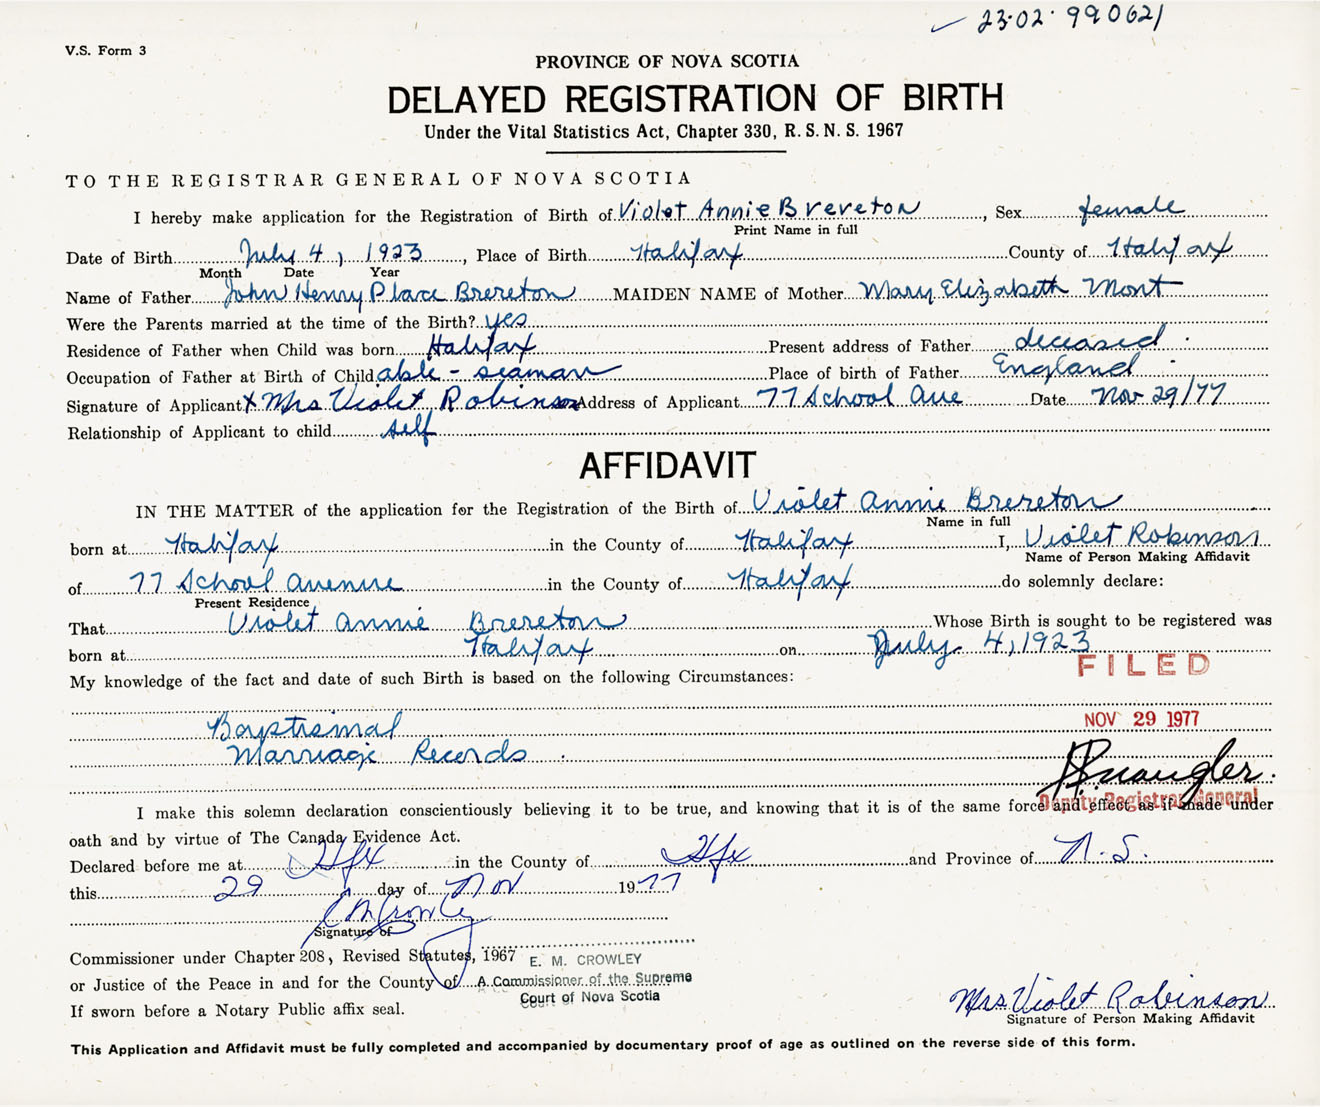 23·02· 990621
V.S. Form 3
PROVINCE OF NOVA SCOTIA
DELAYED REGISTRATION OF BIRTH
Under the Vital Statistics Act, Chapter 330, R. S. N. S. 1967
TO THE REGISTRAR GENERAL OF NOVA SCOTIA
I hereby make application for the Registration of Birth of Violet Annie Brereton, Sex female
Print Name in full
Date of Birth July 4, 1923, Place of Birth Halifax County of Halifax
Month Date Year
Name of Father John Henry Place Brereton MAIDEN NAME of Mother Mary Elizabeth Mont
Were the Parents married at the time of the Birth? yes
Residence of Father when Child was born Halifax Present address of Father deceased
Occupation of Father at Birth of Child able - seaman Place of birth of Father England
Signature of Applicant X Mrs Violet Robinson Address of Applicant 77 School Ave Date Nov 29/77
Relationship of Applicant to child self
AFFIDAVIT
IN THE MATTER of the application for the Registration of the Birth of Violet Annie Brereton
Name in full
born at Halifax in the County of Halifax I, Violet Robinson
Name of Person Making Affidavit
of 77 School Avenue in the County of Halifax do solemnly declare:
Present Residence
That Violet Annie Brereton Whose Birth is sought to be registered was
born at Halifax on July 4, 1923
FILED
My knowledge of the fact and date of such Birth is based on the following Circumstances:
NOV 29 1977
Baptismal
Marriage Records
Deputy Registrar General
I make this solemn declaration conscientiously believing it to be true, and knowing that it is of the same force and effect as if made under
oath and by virtue of The Canada Evidence Act.
Declared before me at Hfx in the County of Hfx and Province of N.S.
this 29 day of Nov 1977
E M Crowley
Signature of
Commissioner under Chapter 208, Revised Statutes, 1967 E. M. CROWLEY
or Justice of the Peace in and for the County of A Commissioner of the Supreme
Court of Nova Scotia
If sworn before a Notary Public affix seal.
Mrs Violet Robinson
Signature of Person Making Affidavit
This Application and Affidavit must be fully completed and accompanied by documentary proof of age as outlined on the reverse side of this form.